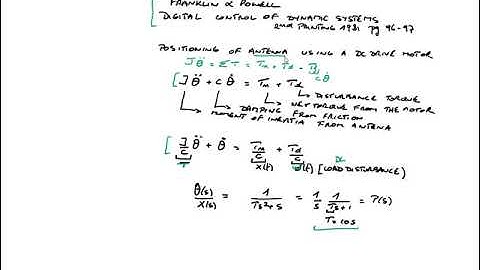 FRANKLIN & POWELL
DIGITAL CONTROL OF DYNAMIC SYSTEMS
2nd PRINTING 1981 pg 96-97
POSITIONING OF ANTENNA USING A DC DRIVE MOTOR
Jθ̈ = ΣT = Tm + Td -
cθ̇
Jθ̈ + Cθ̇ = Tm + Td
DISTURBANCE TORQUE
NET TORQUE FROM THE MOTOR
DAMPING FROM FRICTION
MOMENT OF INERTIA FROM ANTENA
J/C θ̈ + θ̇ = Tm/C + Td/C
T x(t) (t) [LOAD DISTURBANCE]
θ(s)/x(s) = 1/(Ts²+s) = 1/s 1/(Ts+1) = P(s)
T=10s